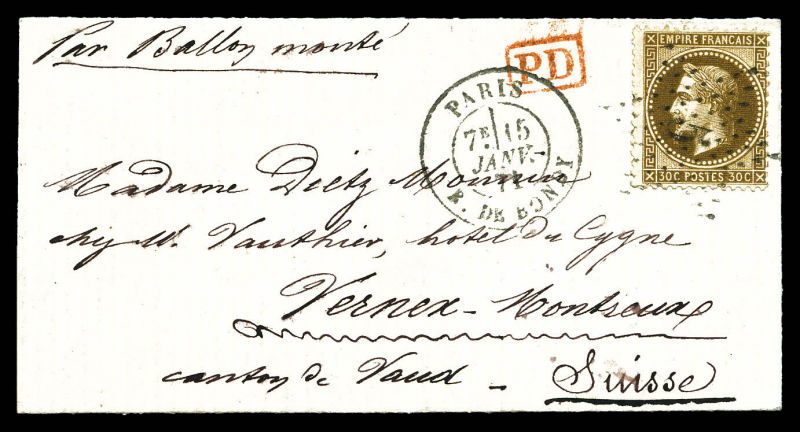 Par Ballon monté
PD
EMPIRE FRANCAIS
30C POSTES 30C
PARIS
7E 15
JANV.
71
R. DE BONDY
Madame Dietz Monnin
chez M. Vauthier, hotel du Cygne
Vernex-Montreux
canton de Vaud - Suisse